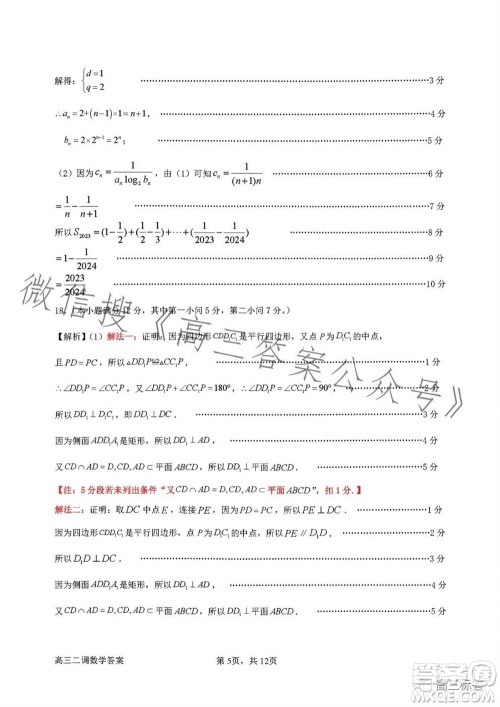 解得：{d=1 q=2 ……3 分
∴aₙ=2+(n−1)×1=n+1， ……4 分
bₙ=2×2ⁿ⁻¹=2ⁿ； ……5 分
（2）因为cₙ=1/(aₙlog₂bₙ)，由（1）可知cₙ=1/((n+1)n) ……6 分
=1/n−1/(n+1) ……7 分
所以S₂₀₂₃=(1−1/2)+(1/2−1/3)+⋯+(1/2023−1/2024) ……8 分
=1−1/2024 ……9 分
=2023/2024 ……10 分
18.（本小题满分12分，其中第一小问5分，第二小问7分。）
【解析】（1）解法一：证明：因为四边形CDD₁C₁是平行四边形，又点P为D₁C₁的中点，
且PD=PC，所以△DD₁P≌△CC₁P， ……1 分
∴∠DD₁P=∠CC₁P，又∠DD₁P+∠CC₁P=180°，∴∠DD₁P=∠CC₁P=90°， ……2 分
所以DD₁⊥D₁C₁，即DD₁⊥DC． ……3 分
因为侧面ADD₁A₁是矩形，所以DD₁⊥AD， ……4 分
又CD∩AD=D,CD,AD⊂平面ABCD，所以DD₁⊥平面ABCD． ……5 分
【注：5分段若未列出条件“又CD∩AD=D,CD,AD⊂平面ABCD”，扣1分.】
解法二：证明：取DC中点E，连接PE，因为PD=PC，所以PE⊥DC． ……1 分
因为四边形CDD₁C₁是平行四边形，点P为D₁C₁的中点，所以PE∥D₁D．
所以D₁D⊥DC． ……3 分
因为侧面ADD₁A₁是矩形，所以DD₁⊥AD． ……4 分
又CD∩AD=D,CD,AD⊂平面ABCD，所以DD₁⊥平面ABCD． ……5 分
微信搜《高三答案公众号》
高三二调数学答案 第5页，共12页
高三标答